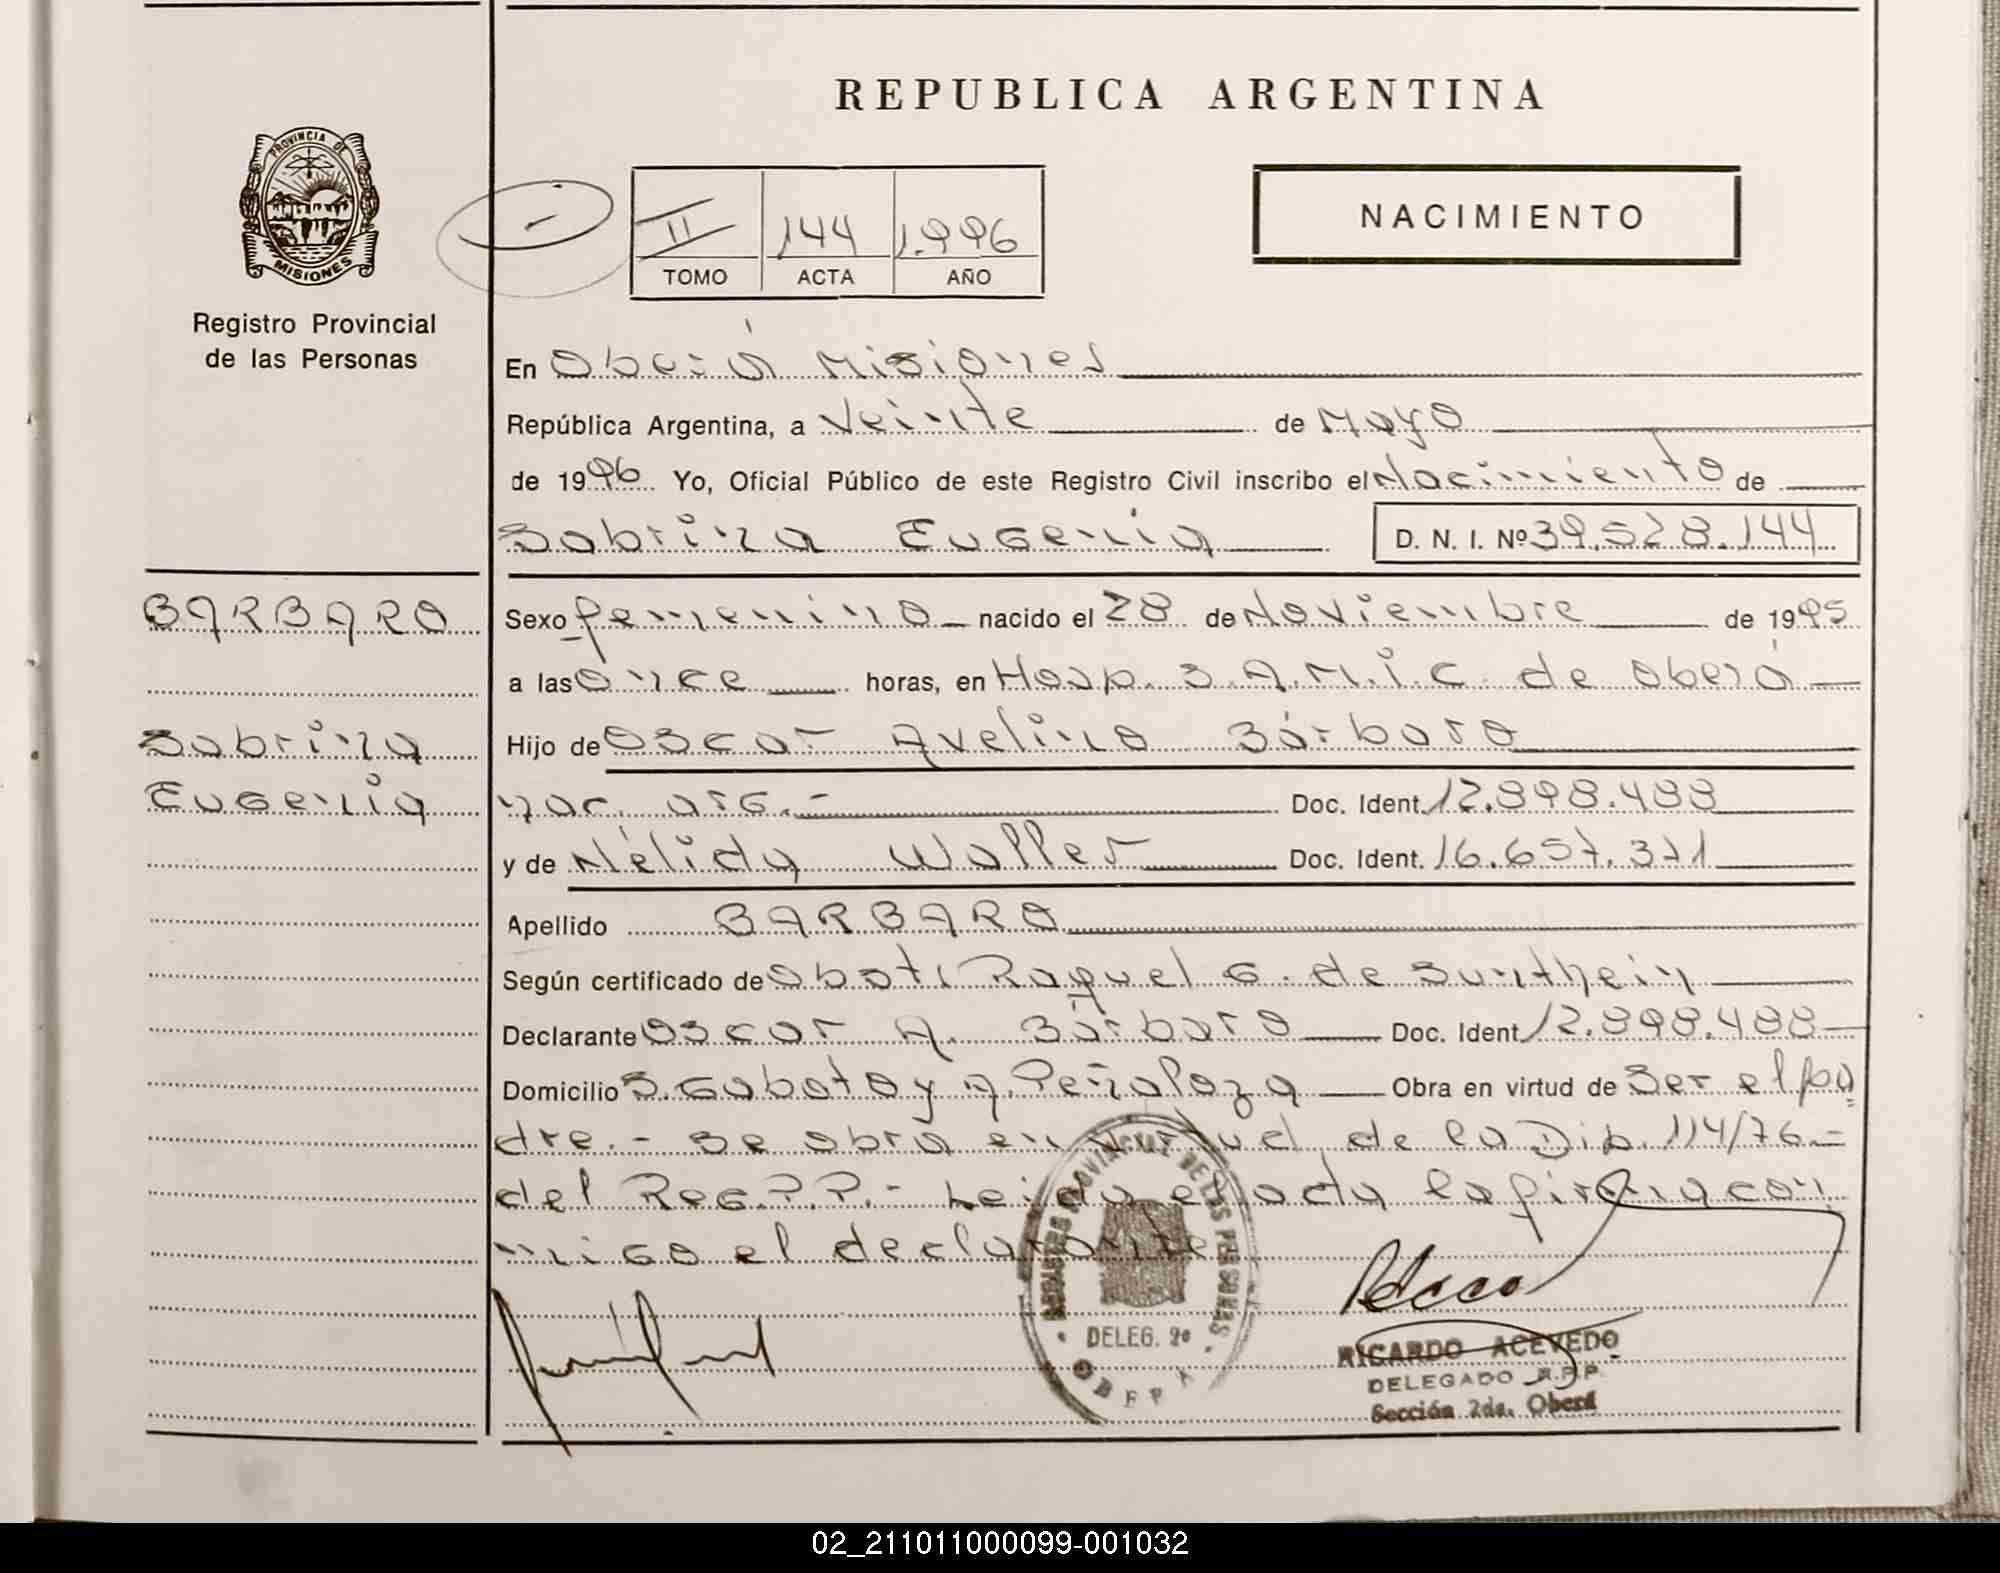 REPUBLICA ARGENTINA
PROVINCIA DE
MISIONES
Registro Provincial
de las Personas
II 144 1.996
TOMO ACTA AÑO
NACIMIENTO
En Oberá Misiones
República Argentina, a Veinte de Mayo
de 1996 Yo, Oficial Público de este Registro Civil inscribo el Nacimiento de
Sabrina Eugenia D. N. I. Nº 39.528.144
BARBARO
Sabrina
Eugenia
Sexo femenino nacido el 28 de Noviembre de 1995
a las once horas, en Hosp. S.A.M.I.C. de Oberá
Hijo de Oscar Avelino Bárbaro
nac. arg.- Doc. Ident. 12.898.488
y de Nélida Waller Doc. Ident. 16.657.371
Apellido BARBARO
Según certificado de Obst. Raquel G. de
Declarante Oscar A. Bárbaro Doc. Ident. 12.898.488
Domicilio S. Gaboto y A. Peñaloza Obra en virtud de Ser el pa
dre.- Se obra en virtud de la Dip. 114/76.-
del Reg.P.P.- Leida el acta la firma con
migo el declarante
REGISTRO PROVINCIAL DE LAS PERSONAS
DELEG. 2º
OBERA
RICARDO ACEVEDO
DELEGADO R.P.P.
Sección 2da. Oberá
02_211011000099-001032